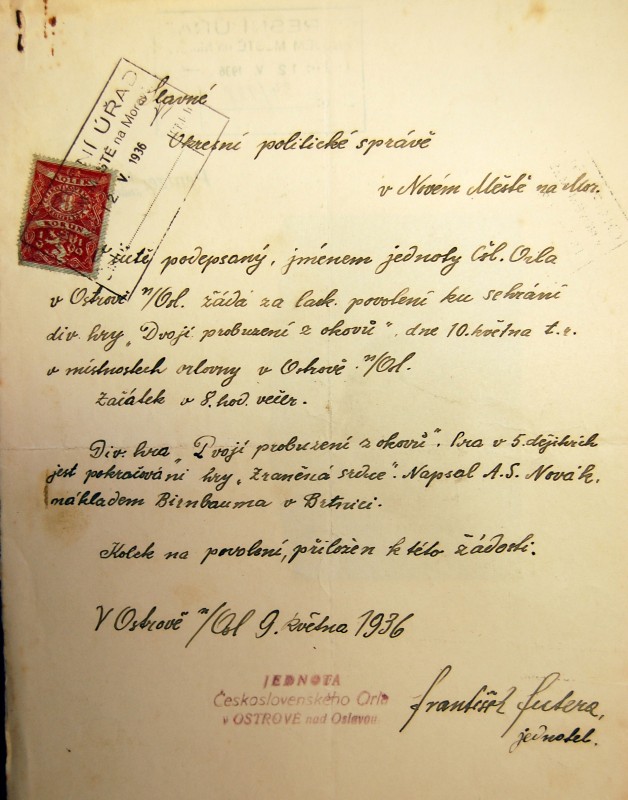 Slavné
Okresní politické správě
v Novém Městě na Mor.
KOLEK
KORUN
NÍ ÚŘAD
MĚSTĚ na Moravě
12 V. 1936
podepsaný, jménem jednoty Čsl. Orla
v Ostrově n/Osl. žádá za lask. povolení ku sehrání
div. hry „Dvojí probuzení z okovů", dne 10. května t. r.
v místnostech orlovny v Ostrově n/Osl.
Začátek v 8. hod. večer.
Div. hra „Dvojí probuzení z okovů". hra v 5. dějstvích
jest pokračování hry „Zraněná srdce". Napsal A. S. Novák,
nákladem Birnbauma v Brtnici.
Kolek na povolení, přiložen k této žádosti.
V Ostrově n/Osl 9. května 1936
JEDNOTA
Československého Orla
v OSTROVĚ nad Oslavou
František Futera,
jednatel.